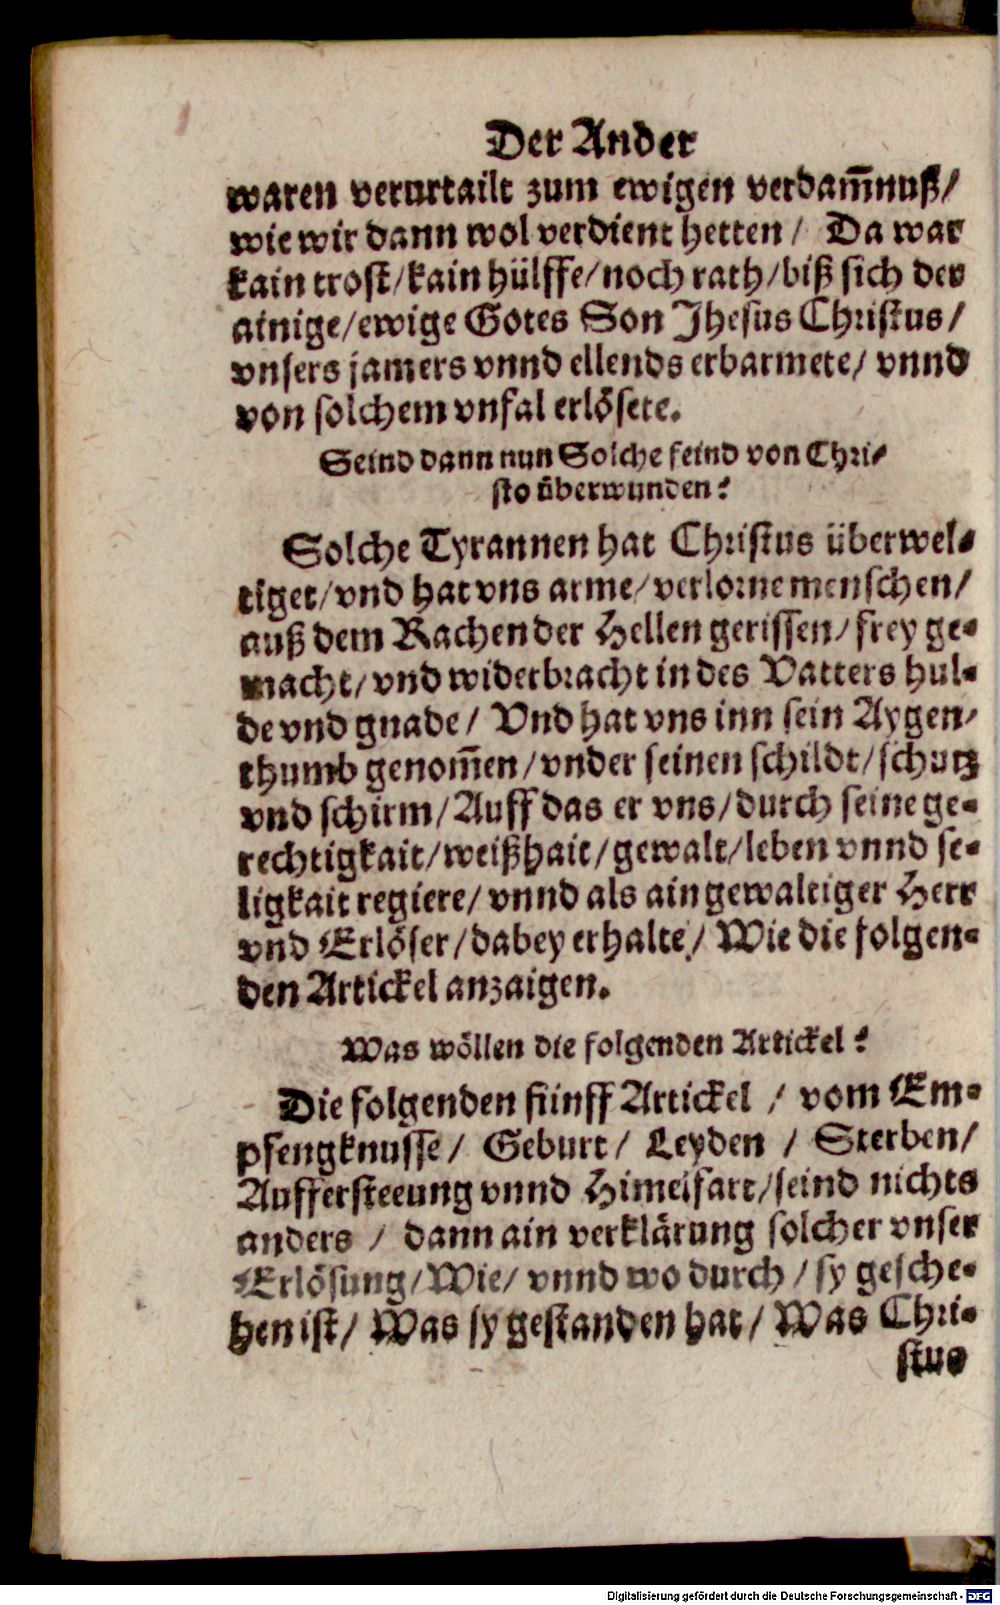 Der Ander
waren verurtailt zum ewigen verdam̅nuß/
wie wir dann wol verdient hetten / Da war
kain trost/kain hülffe/noch rath/biß sich der
ainige/ewige Gotes Son Jhesus Christus/
vnsers jamers vnnd ellends erbarmete/ vnnd
von solchem vnfal erlösete.
Seind dann nun Solche feind von Chri-
sto überwunden?
Solche Tyrannen hat Christus überwel-
tiget/vnd hat vns arme/verlorne menschen/
auß dem Rachen der Hellen gerissen/frey ge-
macht/vnd widerbracht in des Vatters hul-
de vnd gnade/ Vnd hat vns inn sein Aygen-
thumb genom̅en/vnder seinen schildt/schutz
vnd schirm/Auff das er vns/durch seine ge-
rechtigkait/weißhait/gewalt/leben vnnd se-
ligkait regiere/vnnd als ain gewaltiger Herr
vnd Erlöser/dabey erhalte/ Wie die folgen-
den Artickel anzaigen.
Was wöllen die folgenden Artickel?
Die folgenden fünff Artickel / vom Em-
pfengknusse/ Geburt/ Leyden / Sterben/
Aufferstee­ung vnnd Himelfart/seind nichts
anders / dann ain verklärung solcher vnser
Erlösung/Wie/ vnnd wo durch/sy gesche-
hen ist/ Was sy gestanden hat/ Was Chri-
stus
Digitalisierung gefördert durch die Deutsche Forschungsgemeinschaft - DFG